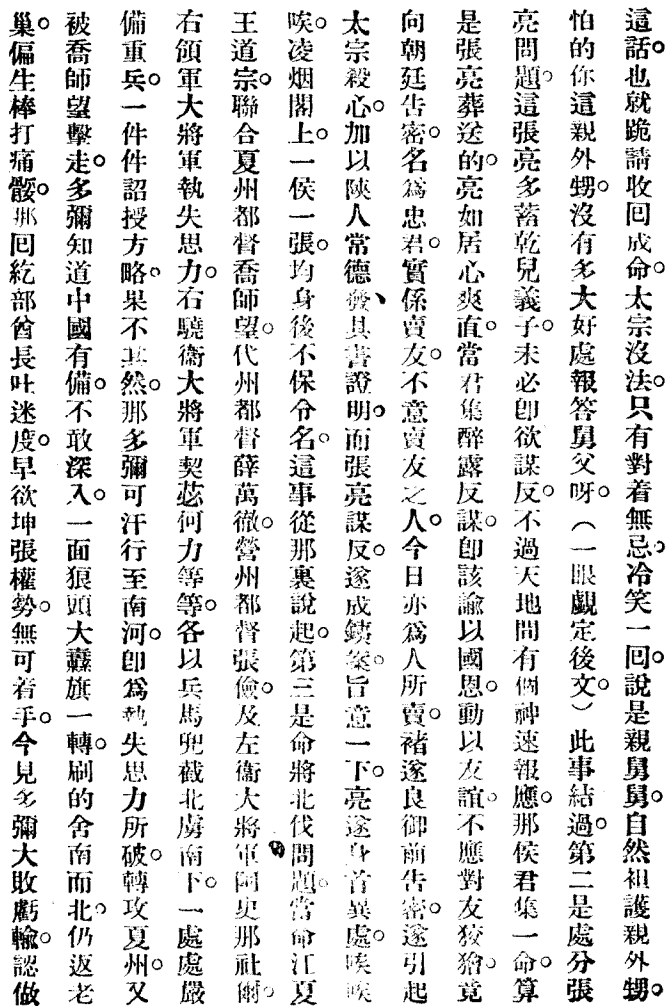 這話也就跪請收回成命。太宗沒法。只有對着無忌冷笑一回。說是親舅舅。自然袒護親外甥。
怕的你這親外甥。沒有多大好處報答舅父呀。（一眼覷定後文。）此事結過。第二是處分張
亮問題。這張亮多蓄乾兒義子。未必卽欲謀反。不過天地間有個神速報應。那侯君集一命。算
是張亮葬送的。亮如居心爽直。當君集醉露反謀。卽該諭以國恩。動以友誼。不應對友狡猾。竟
向朝廷告密。名爲忠君。實係賣友。不意賣友之人。今日亦爲人所賣。褚遂良御前告密。遂引起
太宗殺心。加以陝人常德發其書證明。而張亮謀反。遂成鐵案。旨意一下。亮遂身首異處。唉唉
唉。凌烟閣上。一侯一張。均身後不保令名。這事從那裏說起。第三是命將北伐問題。當命江夏
王道宗。聯合夏州都督喬師望。代州都督薛萬徹。營州都督張儉。及左衞大將軍阿史那社爾。
右領軍大將軍執失思力。右驍衞大將軍契苾何力等等。各以兵馬兜截北虜南下。一處處嚴
備重兵。一件件詔授方略。果不其然。那多彌可汗行至南河。卽爲執失思力所破。轉攻夏州。又
被喬師望擊走。多彌知道中國有備。不敢深入。一面狼頭大纛旗一轉。刷的舍南而北。仍返老
巢。偏生棒打痛骰。那回紇部酋長吐迷度。早欲坤張權勢。無可着手。今見多彌大敗虧輸。認做